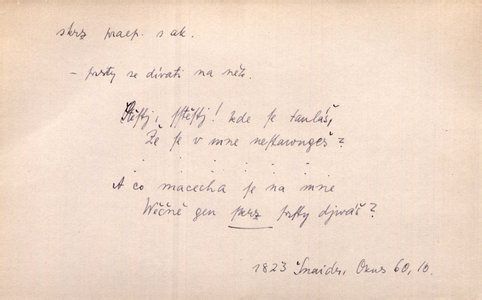 skrz praep. s ak.
- prsty se dívati na něco.
Štěstj, sstěstj! kde se taulášs,
Že se v mne nestarongeš?
. . . . . .
A co macecha se na mne
Wěčně gen skrz prsty djwáš?
1823 Šnaidr, Okus 60, 10.